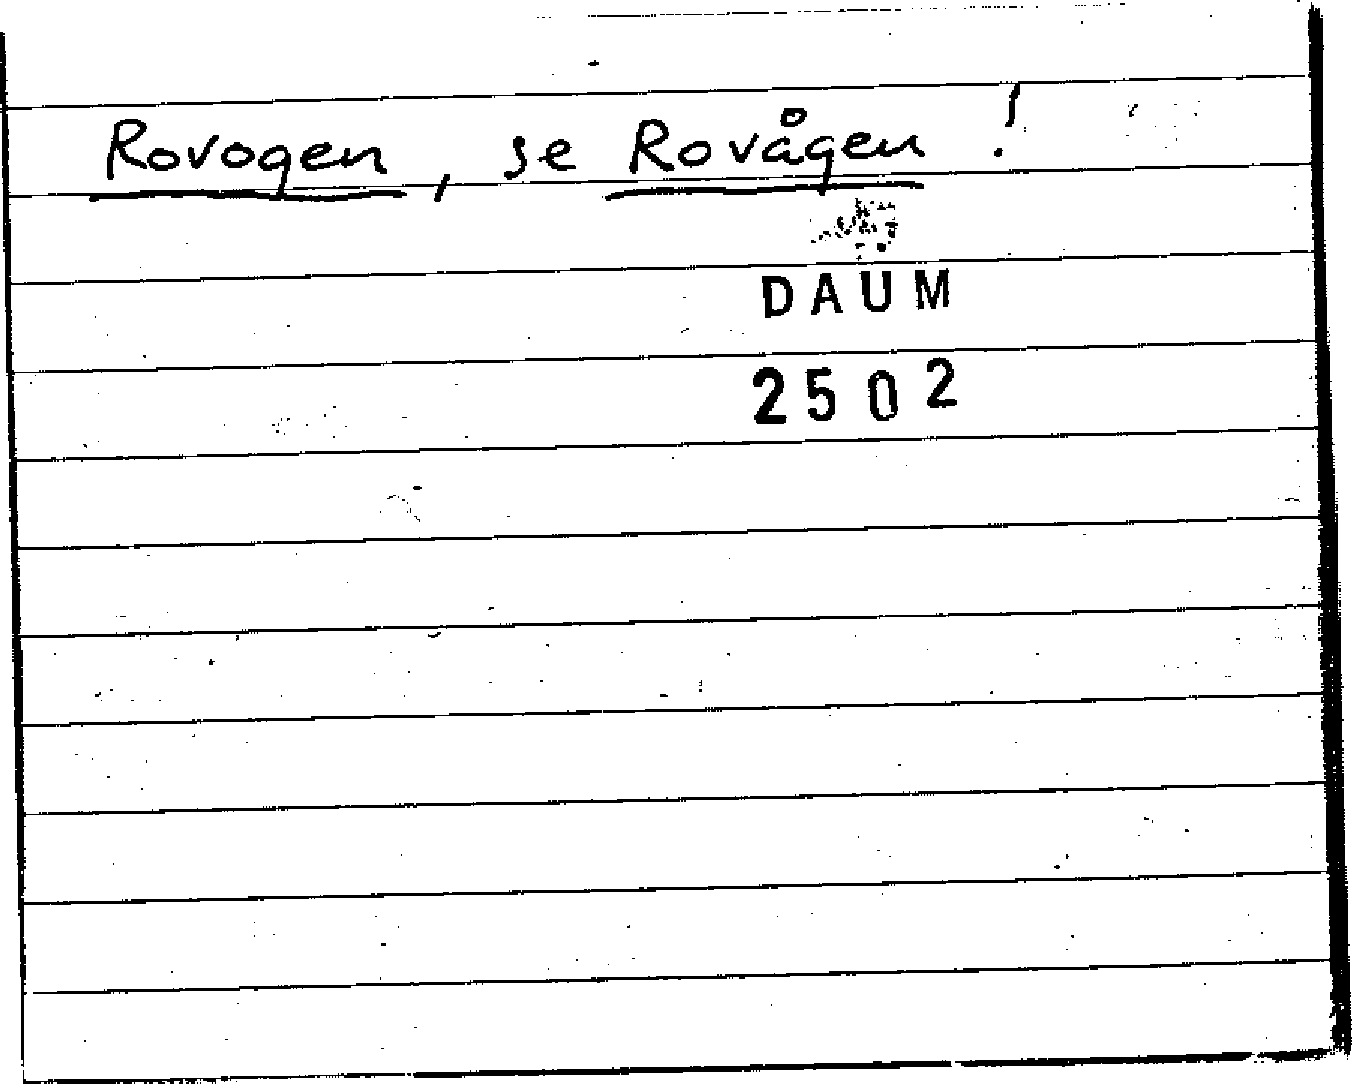 Rovogen, se Rovågen!
DAUM
2502